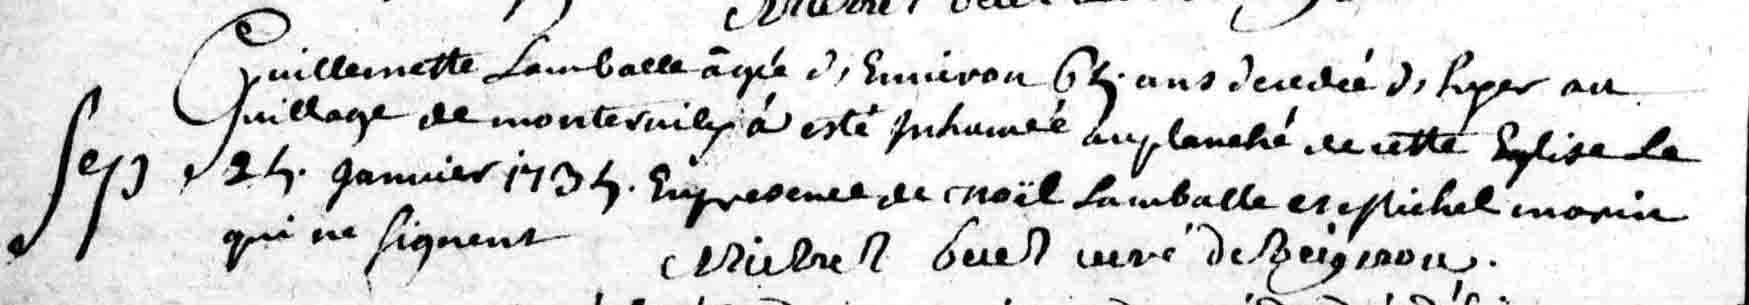 Guillemette Lamballe âgée d'Environ 64. ans decedée d'hyer au
Sep village de monternily á esté Inhumée au planché de cette Eglise Le
24. Janvier 1734. En presence de Noël Lamballe et Michel morin
qui ne signent
Buet curé de Beignon.